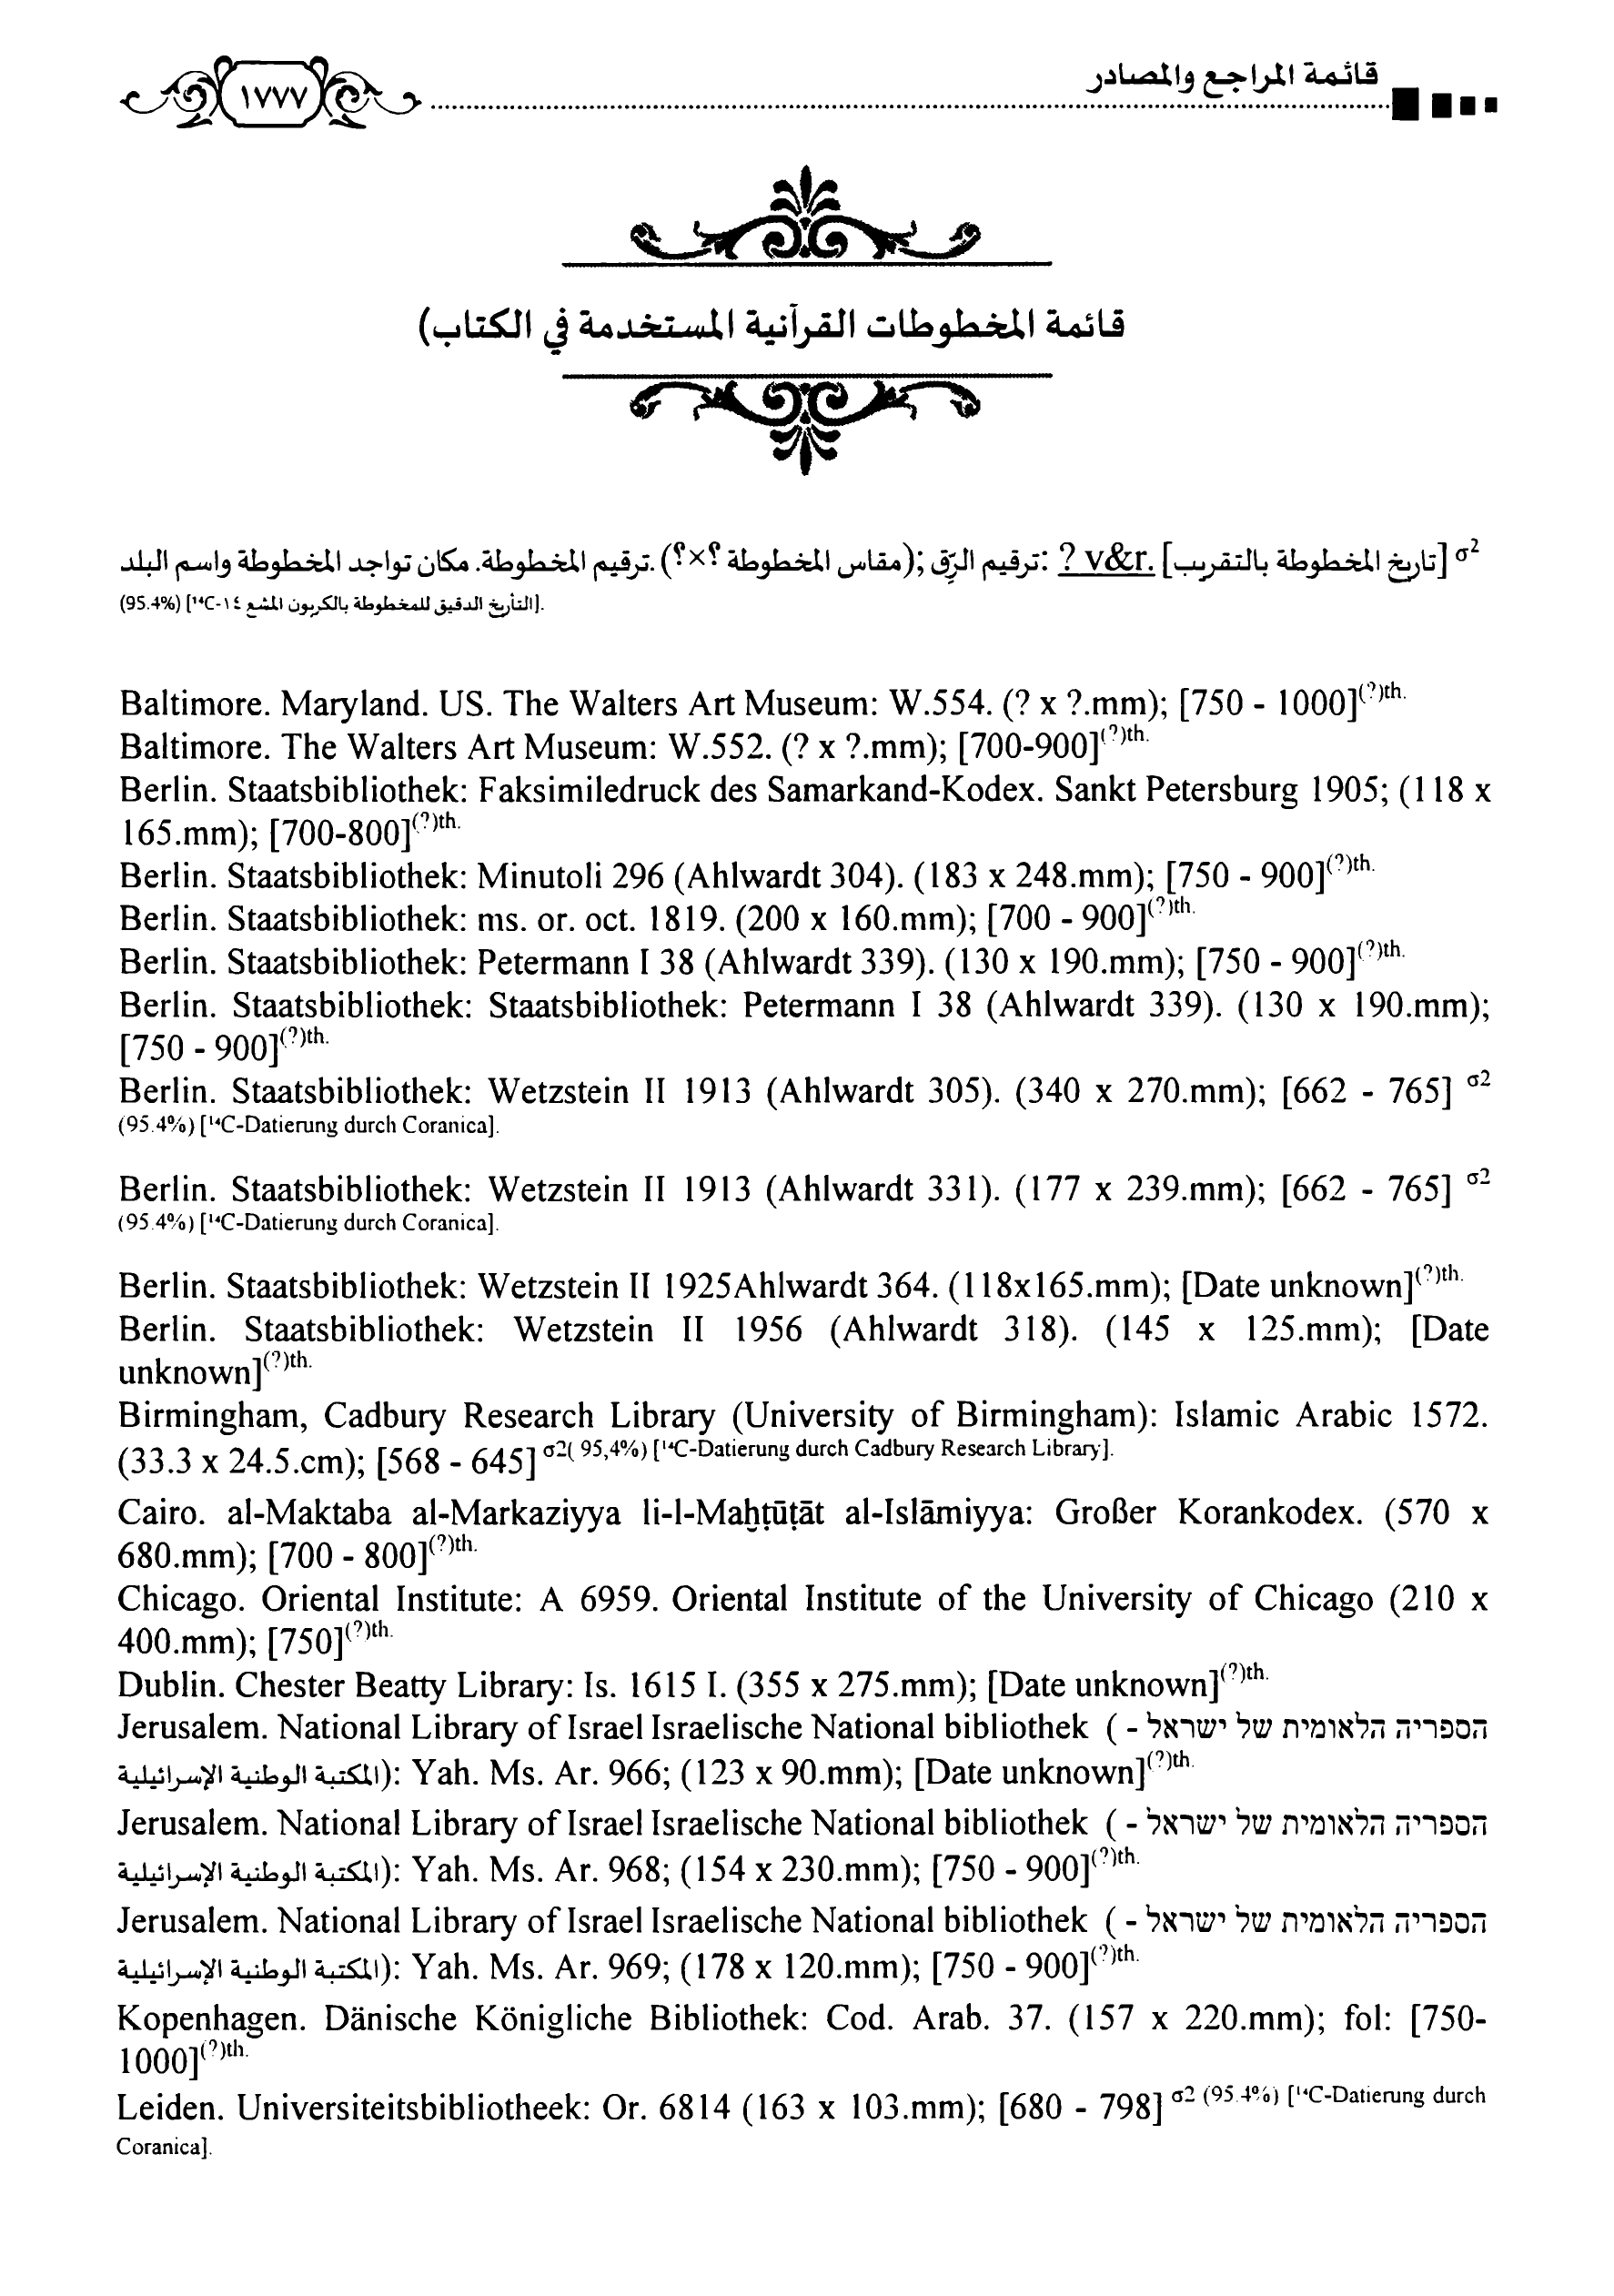 قائمة المراجع والمصادر
١٧٧٧
قائمة المخطوطات القرآنية المستخدمة في الكتاب)
σ² [تاريخ المخطوطة بالتقريب] .v&r ? :ترقيم الرّق ;(مقاس المخطوطة ؟×؟) .ترقيم المخطوطة. مكان تواجد المخطوطة واسم البلد
(95.4%) [¹⁴C-١٤ التأريخ الدقيق للمخطوطة بالكربون المشع].
Baltimore. Maryland. US. The Walters Art Museum: W.554. (? x ?.mm); [750 - 1000](?)th.
Baltimore. The Walters Art Museum: W.552. (? x ?.mm); [700-900](?)th.
Berlin. Staatsbibliothek: Faksimiledruck des Samarkand-Kodex. Sankt Petersburg 1905; (118 x
165.mm); [700-800](?)th.
Berlin. Staatsbibliothek: Minutoli 296 (Ahlwardt 304). (183 x 248.mm); [750 - 900](?)th.
Berlin. Staatsbibliothek: ms. or. oct. 1819. (200 x 160.mm); [700 - 900](?)th.
Berlin. Staatsbibliothek: Petermann I 38 (Ahlwardt 339). (130 x 190.mm); [750 - 900](?)th.
Berlin. Staatsbibliothek: Staatsbibliothek: Petermann I 38 (Ahlwardt 339). (130 x 190.mm);
[750 - 900](?)th.
Berlin. Staatsbibliothek: Wetzstein II 1913 (Ahlwardt 305). (340 x 270.mm); [662 - 765] σ2
(95.4%) [¹⁴C-Datierung durch Coranica].
Berlin. Staatsbibliothek: Wetzstein II 1913 (Ahlwardt 331). (177 x 239.mm); [662 - 765] σ2
(95.4%) [¹⁴C-Datierung durch Coranica].
Berlin. Staatsbibliothek: Wetzstein II 1925Ahlwardt 364. (118x165.mm); [Date unknown](?)th.
Berlin. Staatsbibliothek: Wetzstein II 1956 (Ahlwardt 318). (145 x 125.mm); [Date
unknown](?)th.
Birmingham, Cadbury Research Library (University of Birmingham): Islamic Arabic 1572.
(33.3 x 24.5.cm); [568 - 645] σ2( 95,4%) [¹⁴C-Datierung durch Cadbury Research Library].
Cairo. al-Maktaba al-Markaziyya li-l-Maḫṭūṭāt al-Islāmiyya: Großer Korankodex. (570 x
680.mm); [700 - 800](?)th.
Chicago. Oriental Institute: A 6959. Oriental Institute of the University of Chicago (210 x
400.mm); [750](?)th.
Dublin. Chester Beatty Library: Is. 1615 I. (355 x 275.mm); [Date unknown](?)th.
Jerusalem. National Library of Israel Israelische National bibliothek ( - הספריה הלאומית של ישראל
المكتبة الوطنية الإسرائيلية): Yah. Ms. Ar. 966; (123 x 90.mm); [Date unknown](?)th.
Jerusalem. National Library of Israel Israelische National bibliothek ( - הספריה הלאומית של ישראל
المكتبة الوطنية الإسرائيلية): Yah. Ms. Ar. 968; (154 x 230.mm); [750 - 900](?)th.
Jerusalem. National Library of Israel Israelische National bibliothek ( - הספריה הלאומית של ישראל
المكتبة الوطنية الإسرائيلية): Yah. Ms. Ar. 969; (178 x 120.mm); [750 - 900](?)th.
Kopenhagen. Dänische Königliche Bibliothek: Cod. Arab. 37. (157 x 220.mm); fol: [750-
1000](?)th.
Leiden. Universiteitsbibliotheek: Or. 6814 (163 x 103.mm); [680 - 798] σ2 (95.4%) [¹⁴C-Datierung durch
Coranica].